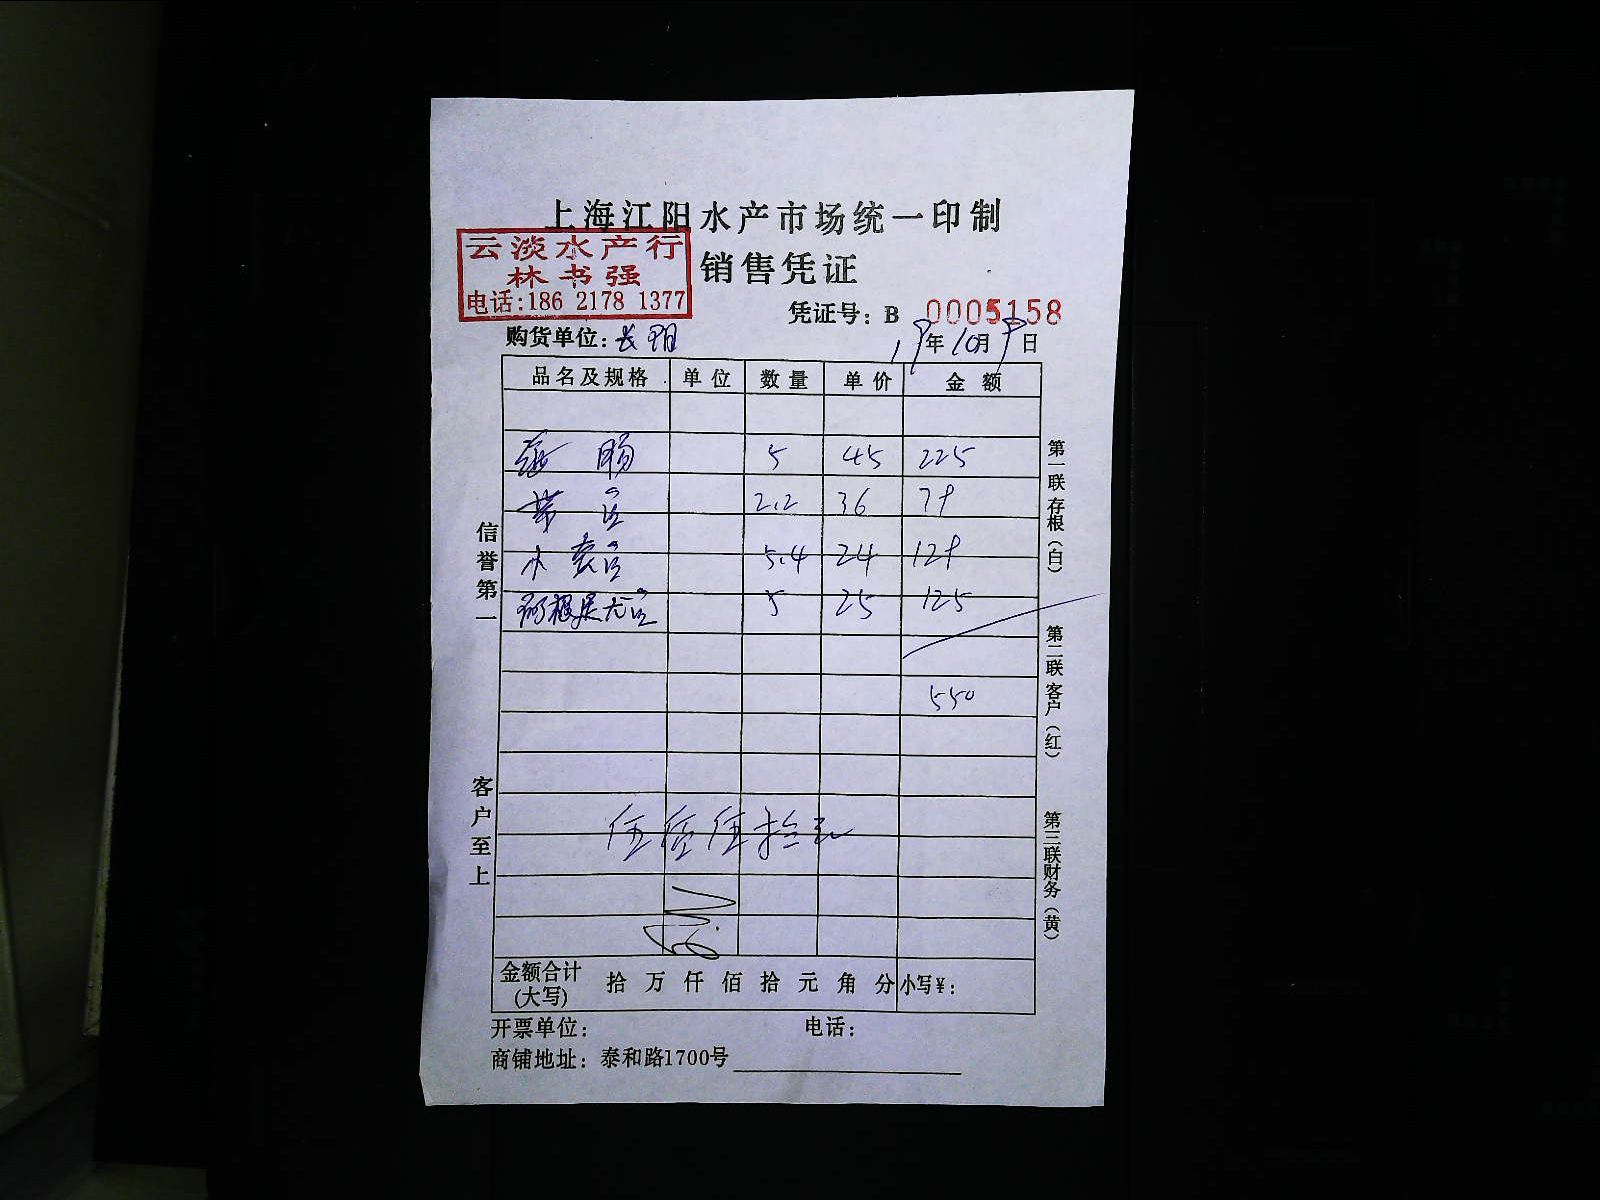 上海江阳水产市场统一印制
云淡水产行
林书强
电话:186 2178 1377
销售凭证
凭证号: B 0005158
购货单位: 长阳
19年10月9日
品名及规格 单位 数量 单价 金额
5 45 225
带鱼 2.2 36 79
小黄鱼 5.4 24 129
阿根廷尤鱼 5 25 125
550
伍佰伍拾元
金额合计(大写) 拾 万 仟 佰 拾 元 角 分 小写¥:
开票单位: 电话:
商铺地址: 泰和路1700号
信誉第一
客户至上
第一联存根(白)
第二联客户(红)
第三联财务(黄)